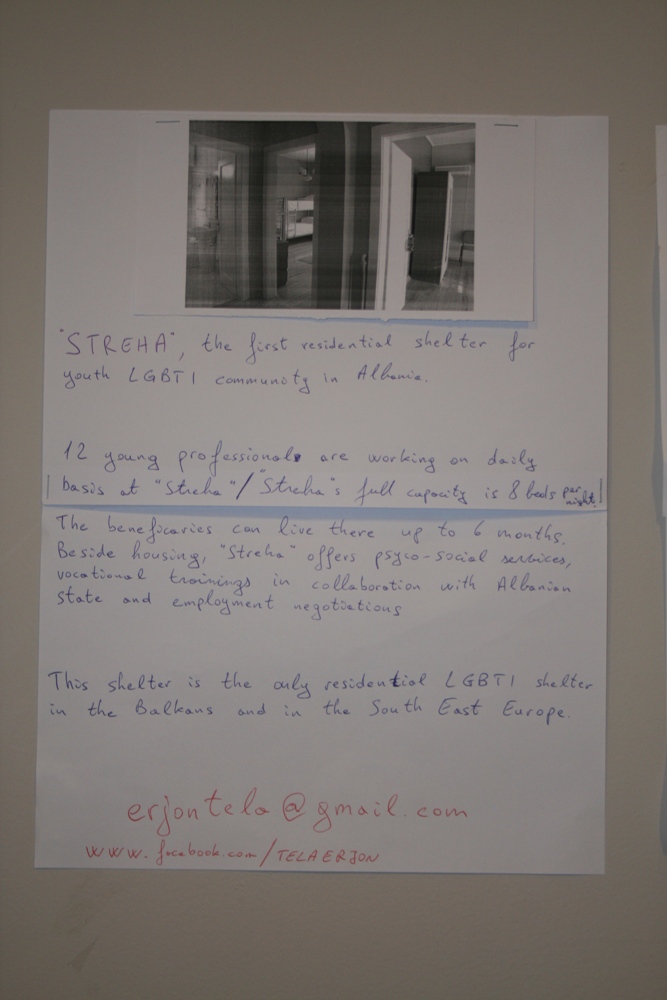 "STREHA", the first residential shelter for
youth LGBTI community in Albania.
12 young professionals are working on daily
basis at "Streha"/"Streha"s full capacity is 8 beds per night!
The beneficaries can live there up to 6 months.
Beside housing, "Streha" offers psyco-social services,
vocational trainings in collaboration with Albanian
state and employment negotiations
This shelter is the only residential LGBTI shelter
in the Balkans and in the South East Europe.
erjontela@gmail.com
www.facebook.com/TELAERJON